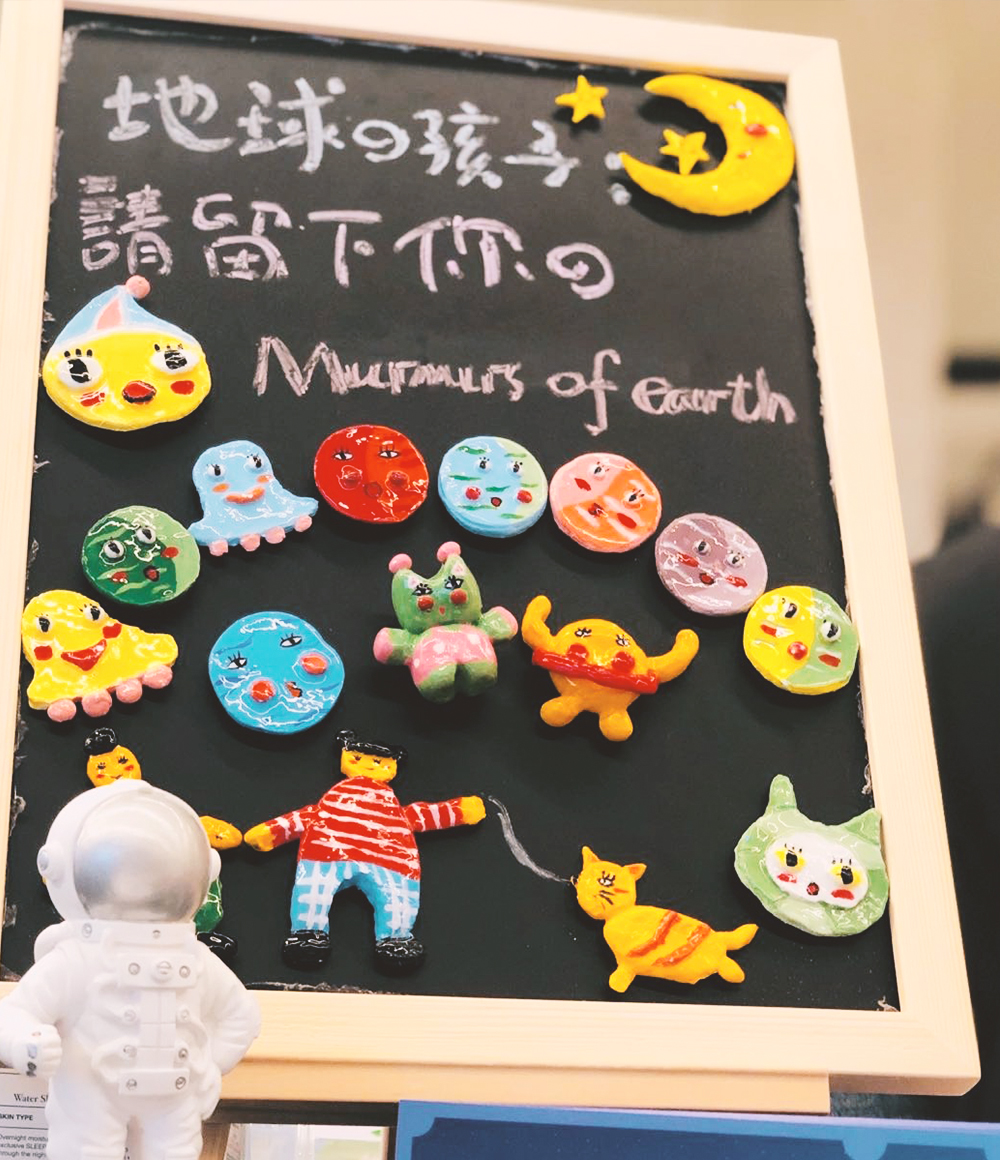 地球の孩子：
請留下你の
Murmurs of earth
Water S
SKIN TYPE
Overnight moistu
exclusive SLEEP
through the night